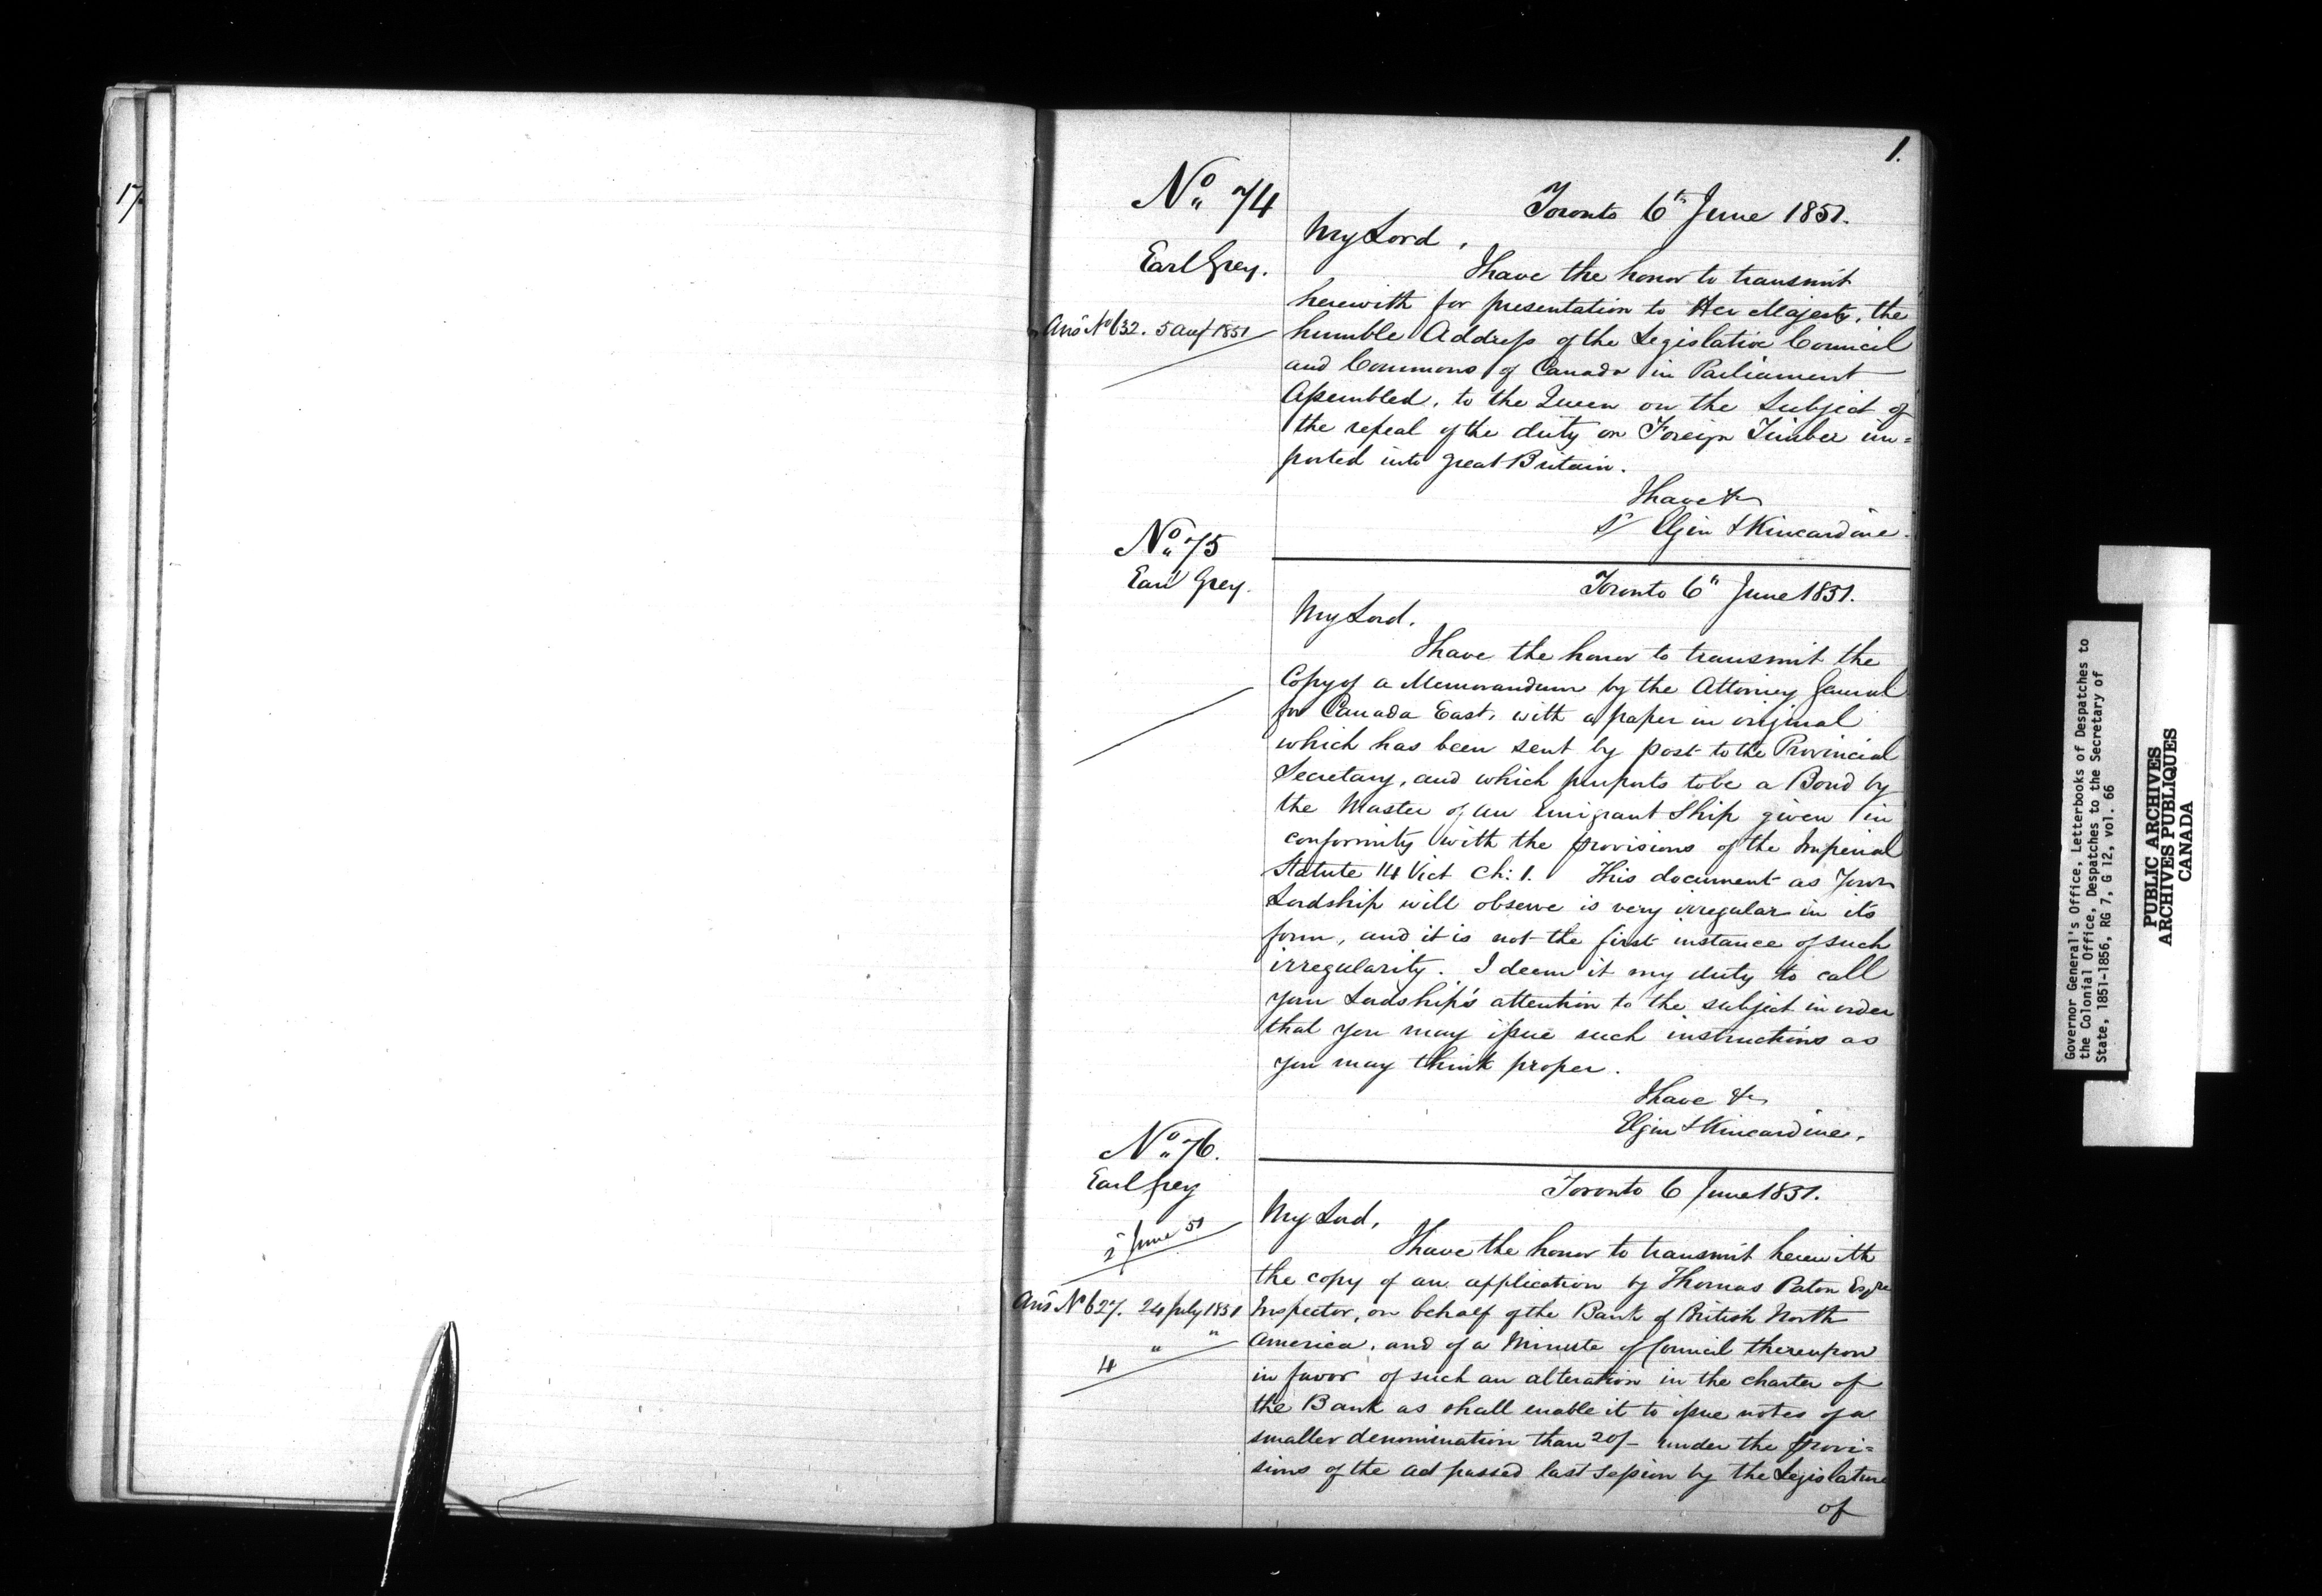 17
1.
No. 74
Earl Grey.
Ansd No 632. 5 Aug 1851
Toronto 6th June 1851.
My Lord,
I have the honor to transmit
herewith for presentation to Her Majesty, the
humble Address of the Legislative Council
and Commons of Canada in Parliament
Assembled, to the Queen on the Subject of
the repeal of the duty on Foreign Timber im=
ported into Great Britain.
I have &c
s/ Elgin & Kincardine.
No. 75
Earl Grey.
Toronto 6" June 1851.
My Lord.
I have the honor to transmit the
Copy of a Memorandum by the Attorney General
for Canada East, with a paper in original
which has been sent by post to the Provincial
Secretary, and which purports to be a Bond by
the Master of an Emigrant Ship given in
conformity with the provisions of the Imperial
Statute 14 Vict Ch: 1. This document as Your
Lordship will observe is very irregular in its
form, and it is not the first instance of such
irregularity. I deem it my duty to call
your Lordship's attention to the subject in order
that you may issue such instructions as
you may think proper.
I have &c
Elgin & Kincardine.
No. 76.
Earl Grey
June 51
Ansd No 627. 24 July 1851
4 " "
Toronto 6 June 1851.
My Lord,
I have the honor to transmit herewith
the copy of an application by Thomas Paton Esqre
Inspector, on behalf of the Bank of British North
America, and of a Minute of Council thereupon
in favor of such an alteration in the charter of
the Bank as shall enable it to issue notes of a
smaller denomination than 20/- under the provi=
sions of the act passed last session by the Legislature
of
Governor General's Office, Letterbooks of Despatches to
the Colonial Office, Despatches to the Secretary of
State, 1851-1856, RG 7, G 12, vol. 66
PUBLIC ARCHIVES
ARCHIVES PUBLIQUES
CANADA